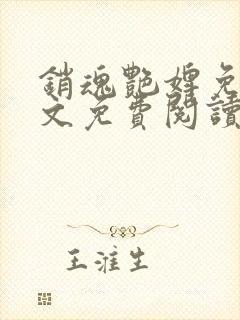 銷魂艷婢免
文免費閱讀
王淮生